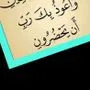 وَأَعُوذُ بِكَ رَبِّ
أَن يَحْضُرُونِ